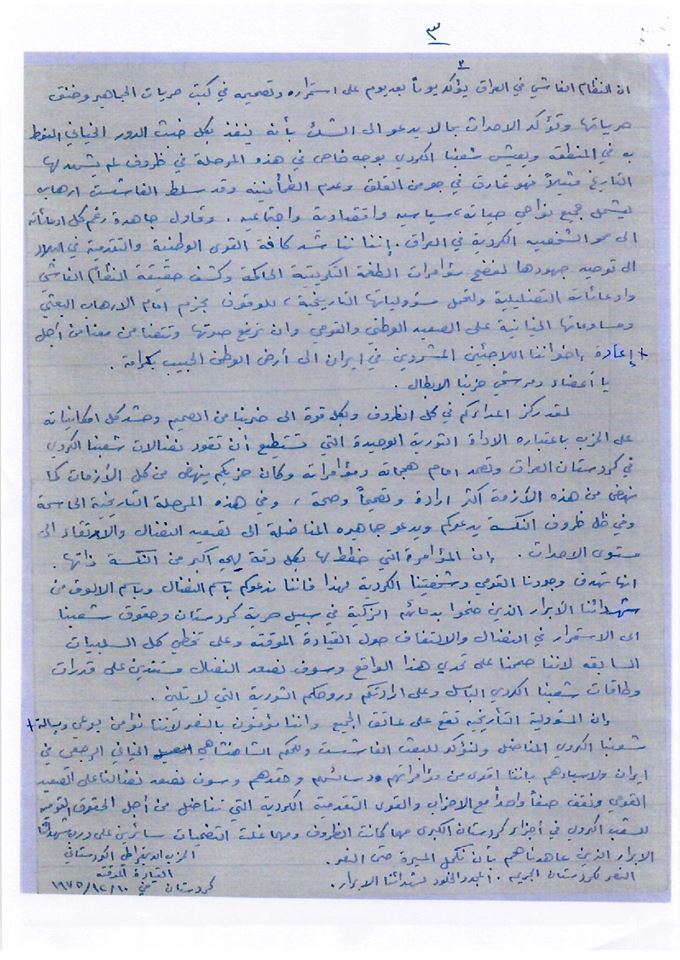 ٣
٣
ان النظام الفاشي في العراق يؤكد يوماً بعد يوم على استمراره وتصميمه في كبت حريات الجماهير وخنق
حرياتها وتؤكد الاحداث بما لا يدعو الى الشك بأنه ينفذ بكل خبث الدور الخياني المنوط
به في المنطقة ويعيش شعبنا الكردي بوجه خاص في هذه المرحلة في ظروف لم يشهد لها
التاريخ مثيلاً فهو غارق في جو من القلق وعدم الطمأنينة وقد سلط الفاشست ارهاب
يشمل جميع نواحي حياته سياسيه واقتصادية واجتماعيه . وتحاول جاهدة رغم كل ادعاءاته
الى محو الشخصيه الكردية في العراق . إننا نناشد كافة القوى الوطنية والتقدمية في البلاد
الى توحيد جهودها لفضح مؤامرات الطغمة التكريتية الحاكمة وكشف حقيقة النظام الفاشي
وادعاءاته التضليلية ولتحمل مسؤولياتها التاريخية ، للوقوف بحزم امام الارهاب البعثي
ومساوماتها الخيانية على الصعيد الوطني والقومي وان ترفع صوتها وتتضامن معنا من أجل
+ إعادة اخواننا اللاجئين المشردين في ايران الى أرض الوطن الحبيب بكرامة .
يا أعضاء ومرشحي حزبنا الابطال .
لقد ركز اعداءكم في كل الظروف وبكل قوة الى ضربنا من الصميم وحشد كل امكانياته
على الحزب باعتباره الاداة الثورية الوحيدة التي تستطيع أن تقود نضالات شعبنا الكردي
في كردستان العراق وتصمد امام هجماته ومؤامراته وكان حزبكم ينهض من كل الأزمات كما
نهض من هذه الأزمة أكثر ارادة وتصميماً وصحة ، وفي هذه المرحلة التاريخية الحاسمة
وفي ظل ظروف النكسة يدعوكم ويدعو جماهيره المناضلة الى تصعيد النضال والارتقاء الى
مستوى الاحداث . ان المؤامرة التي خطط لها بكل دقة لهي أكبر من النكسة ذاتها .
انها تهدف وجودنا القومي وشخصيتنا الكردية لهذا فاننا ندعوكم باسم النضال وباسم الالوف من
شهدائنا الأبرار الذين ضحوا بدمائهم الزكية في سبيل حرية كردستان وحقوق شعبنا
الى الاستمرار في النضال والالتفاف حول القيادة المؤقته وعلى تخطي كل السلبيات
السابقه لاننا صممنا على تحدي هذا الواقع وسوف نصعد النضال مستندين على قدرات
وطاقات شعبنا الكردي الباسل وعلى ارادتكم وروحكم الثورية التي لا تلين .
ان المسؤولية التأريخيه تقع على عاتق الجميع واننا مؤمنون بالنصر لاننا نؤمن بوعي وبسالة +
شعبنا الكردي المناضل ولنؤكد للبعث الفاشست وللحكم الشاهنشاهي الخياني الرجعي في
ايران ولاسيادهم باننا اقوى من مؤامراتهم ودسائسهم وحقدهم وسوف نصعد نضالنا على الصعيد
القومي ونقف صفاً واحداً مع الاحزاب والقوى التقدمية الكردية التي تناضل من أجل الحقوق القومية
للشعب الكردي في أجزاء كردستان الكبرى مهما كانت الظروف ومهما غلت التضحيات سائرين على درب شهدائنا
الابرار الذين عاهدناهم بأن نكمل المسيرة حتى النصر .
النصر لكردستان الجريحة . المجد والخلود لشهدائنا الابرار .
الحزب الديمقراطي الكوردستاني
القيادة المؤقته
كردستان في ١٩٧٥/١٢/١٠